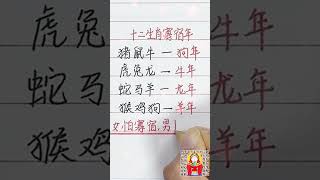 十二生肖寡宿年
猪鼠牛一狗年
虎兔龙一牛年
蛇马羊一龙年
猴鸡狗一羊年
女怕寡宿,男
虎兔
蛇马
猴鸡
狗年
牛年
龙年
羊年